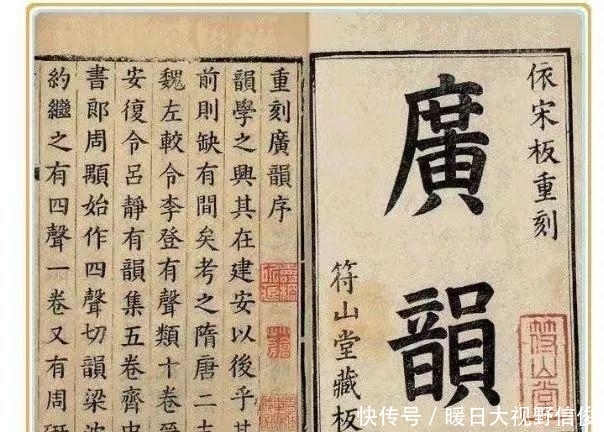 依宋板重刻
廣韻
符山堂藏板
符山堂
重刻廣韻序
韻學之興其在建安以後乎其
前則缺有間矣考之隋唐二
魏左較令李登有聲類十卷
安復令呂靜有韻集五卷齊
書郎周顒始作四聲切韻梁沈
約繼之有四聲一卷又有周
快传号 / 暖日大视野信